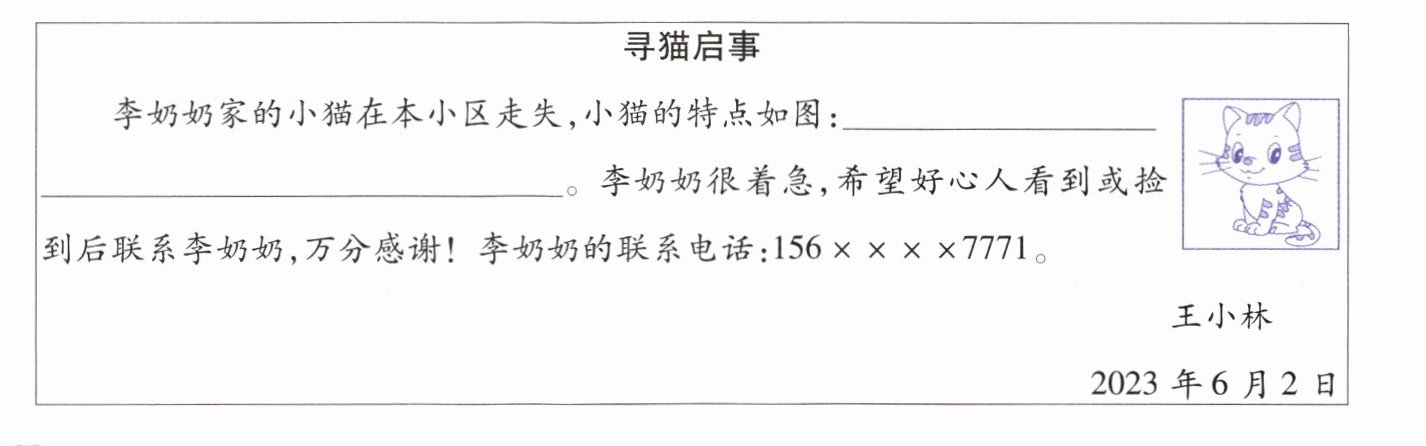 寻猫启事
李奶奶家的小猫在本小区走失,小猫的特点如图:
。李奶奶很着急,希望好心人看到或捡
到后联系李奶奶,万分感谢!李奶奶的联系电话:156××××7771。
王小林
2023年6月2日